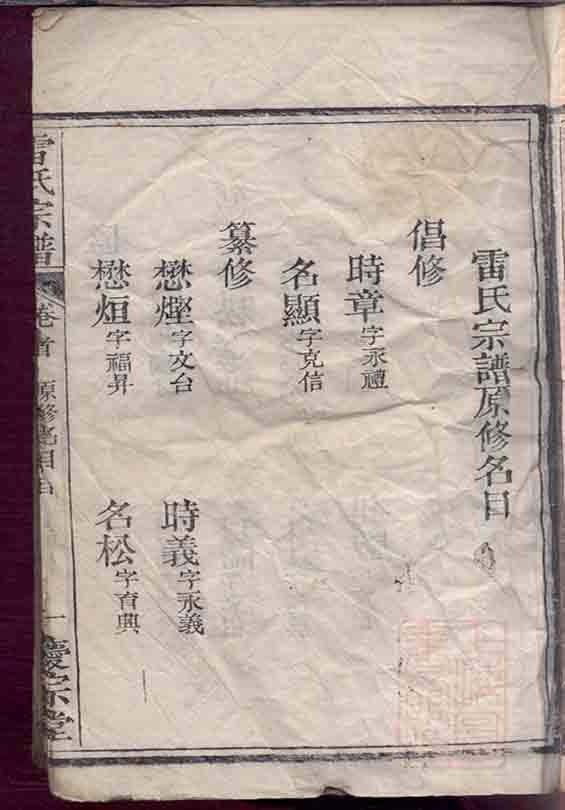 雷氏宗譜原修名目
倡修
時章字永禮
名顯字克信
纂修
懋熞字文台 時義字永義
懋烜字福昇 名松字育興
雷氏宗譜 卷首 原修名目 一 慶宗堂